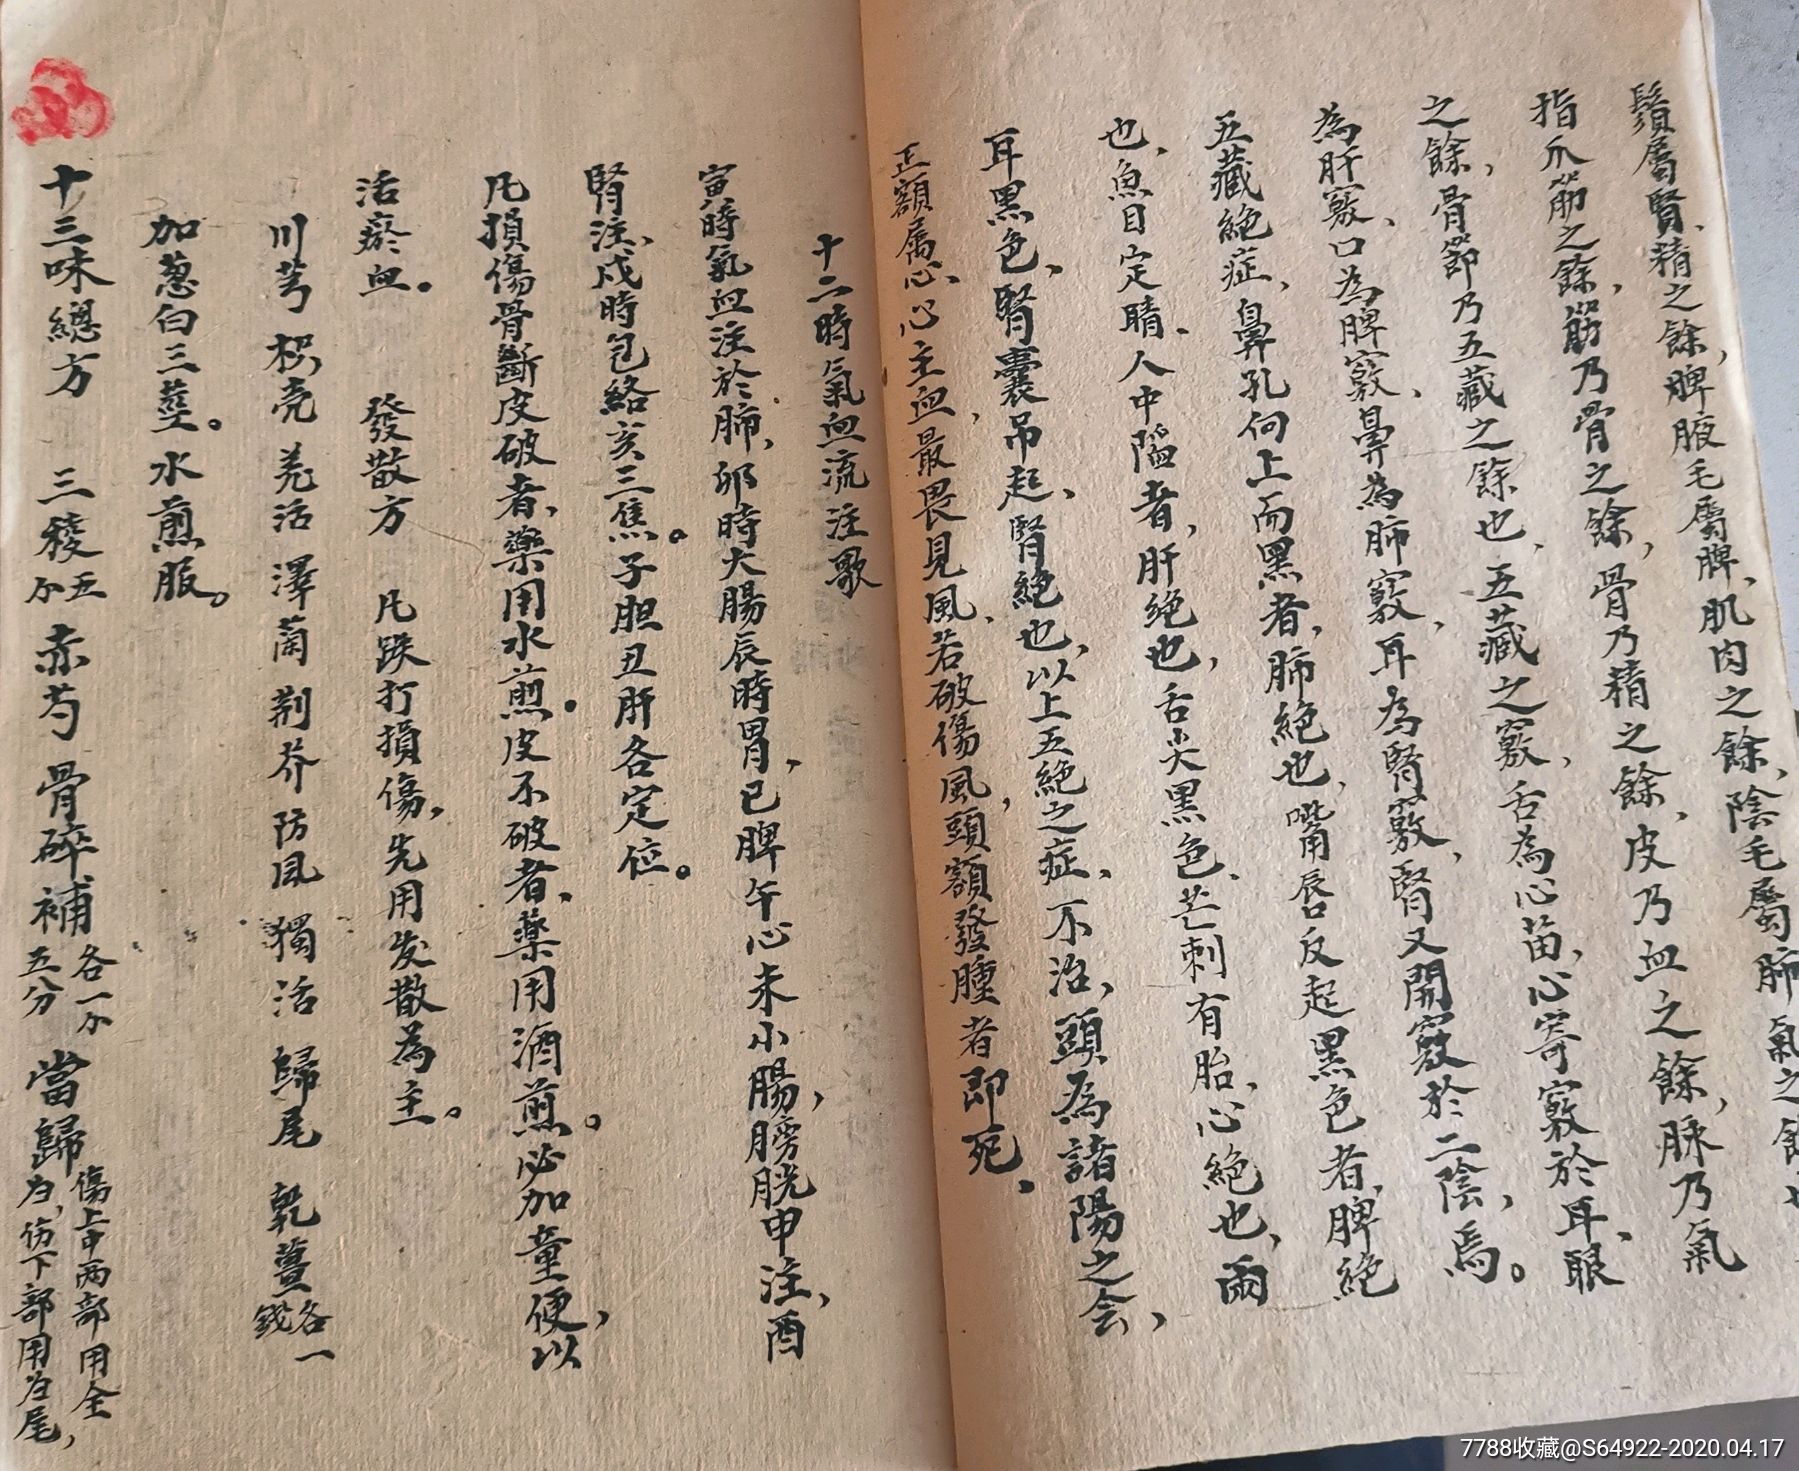 鬚屬腎、精之餘，脾腋毛屬脾、肌肉之餘，陰毛屬肺氣之餘也
指爪筋之餘，筋乃骨之餘，骨乃精之餘，皮乃血之餘，脉乃氣
之餘，骨節乃五藏之餘也，五藏之竅，舌為心苗，心寄竅於耳、眼
為肝竅、口為脾竅、鼻為肺竅，耳為腎竅，腎又開竅於二陰，焉。
五藏絕症，鼻孔向上而黑者，肺絕也，嘴唇反起黑色者，脾絕
也，魚目定睛、人中陷者，肝绝也，舌尖黑色、芒刺有胎，心絕也，兩
耳黑色、腎囊吊起，腎絕也，以上五絕之症，不治，頭為諸陽之会，
正額属心、心主血，最畏見風，若破傷風，頭額發腫者即死、
十二時氣血流注歌
寅時氣血注於肺，卯時大腸辰時胃，巳脾午心未小腸，膀胱申注，酉
腎注，戌時包絡亥三焦。子胆丑肝各定位。
凡損傷骨斷皮破者，藥用水煎。皮不破者，藥用酒煎。必加童便，以
活瘀血。 發散方 凡跌打損傷，先用发散為主。
川芎 枳壳 羌活 澤蘭 荆芥 防風 獨活 歸尾 乾薑各一錢
加葱白三莖。水煎服。
十三味總方 三稜五小 赤芍 骨碎補各一小五分 當歸傷上中两部用全归，伤下部用归尾，
7788收藏@S64922-2020.04.17